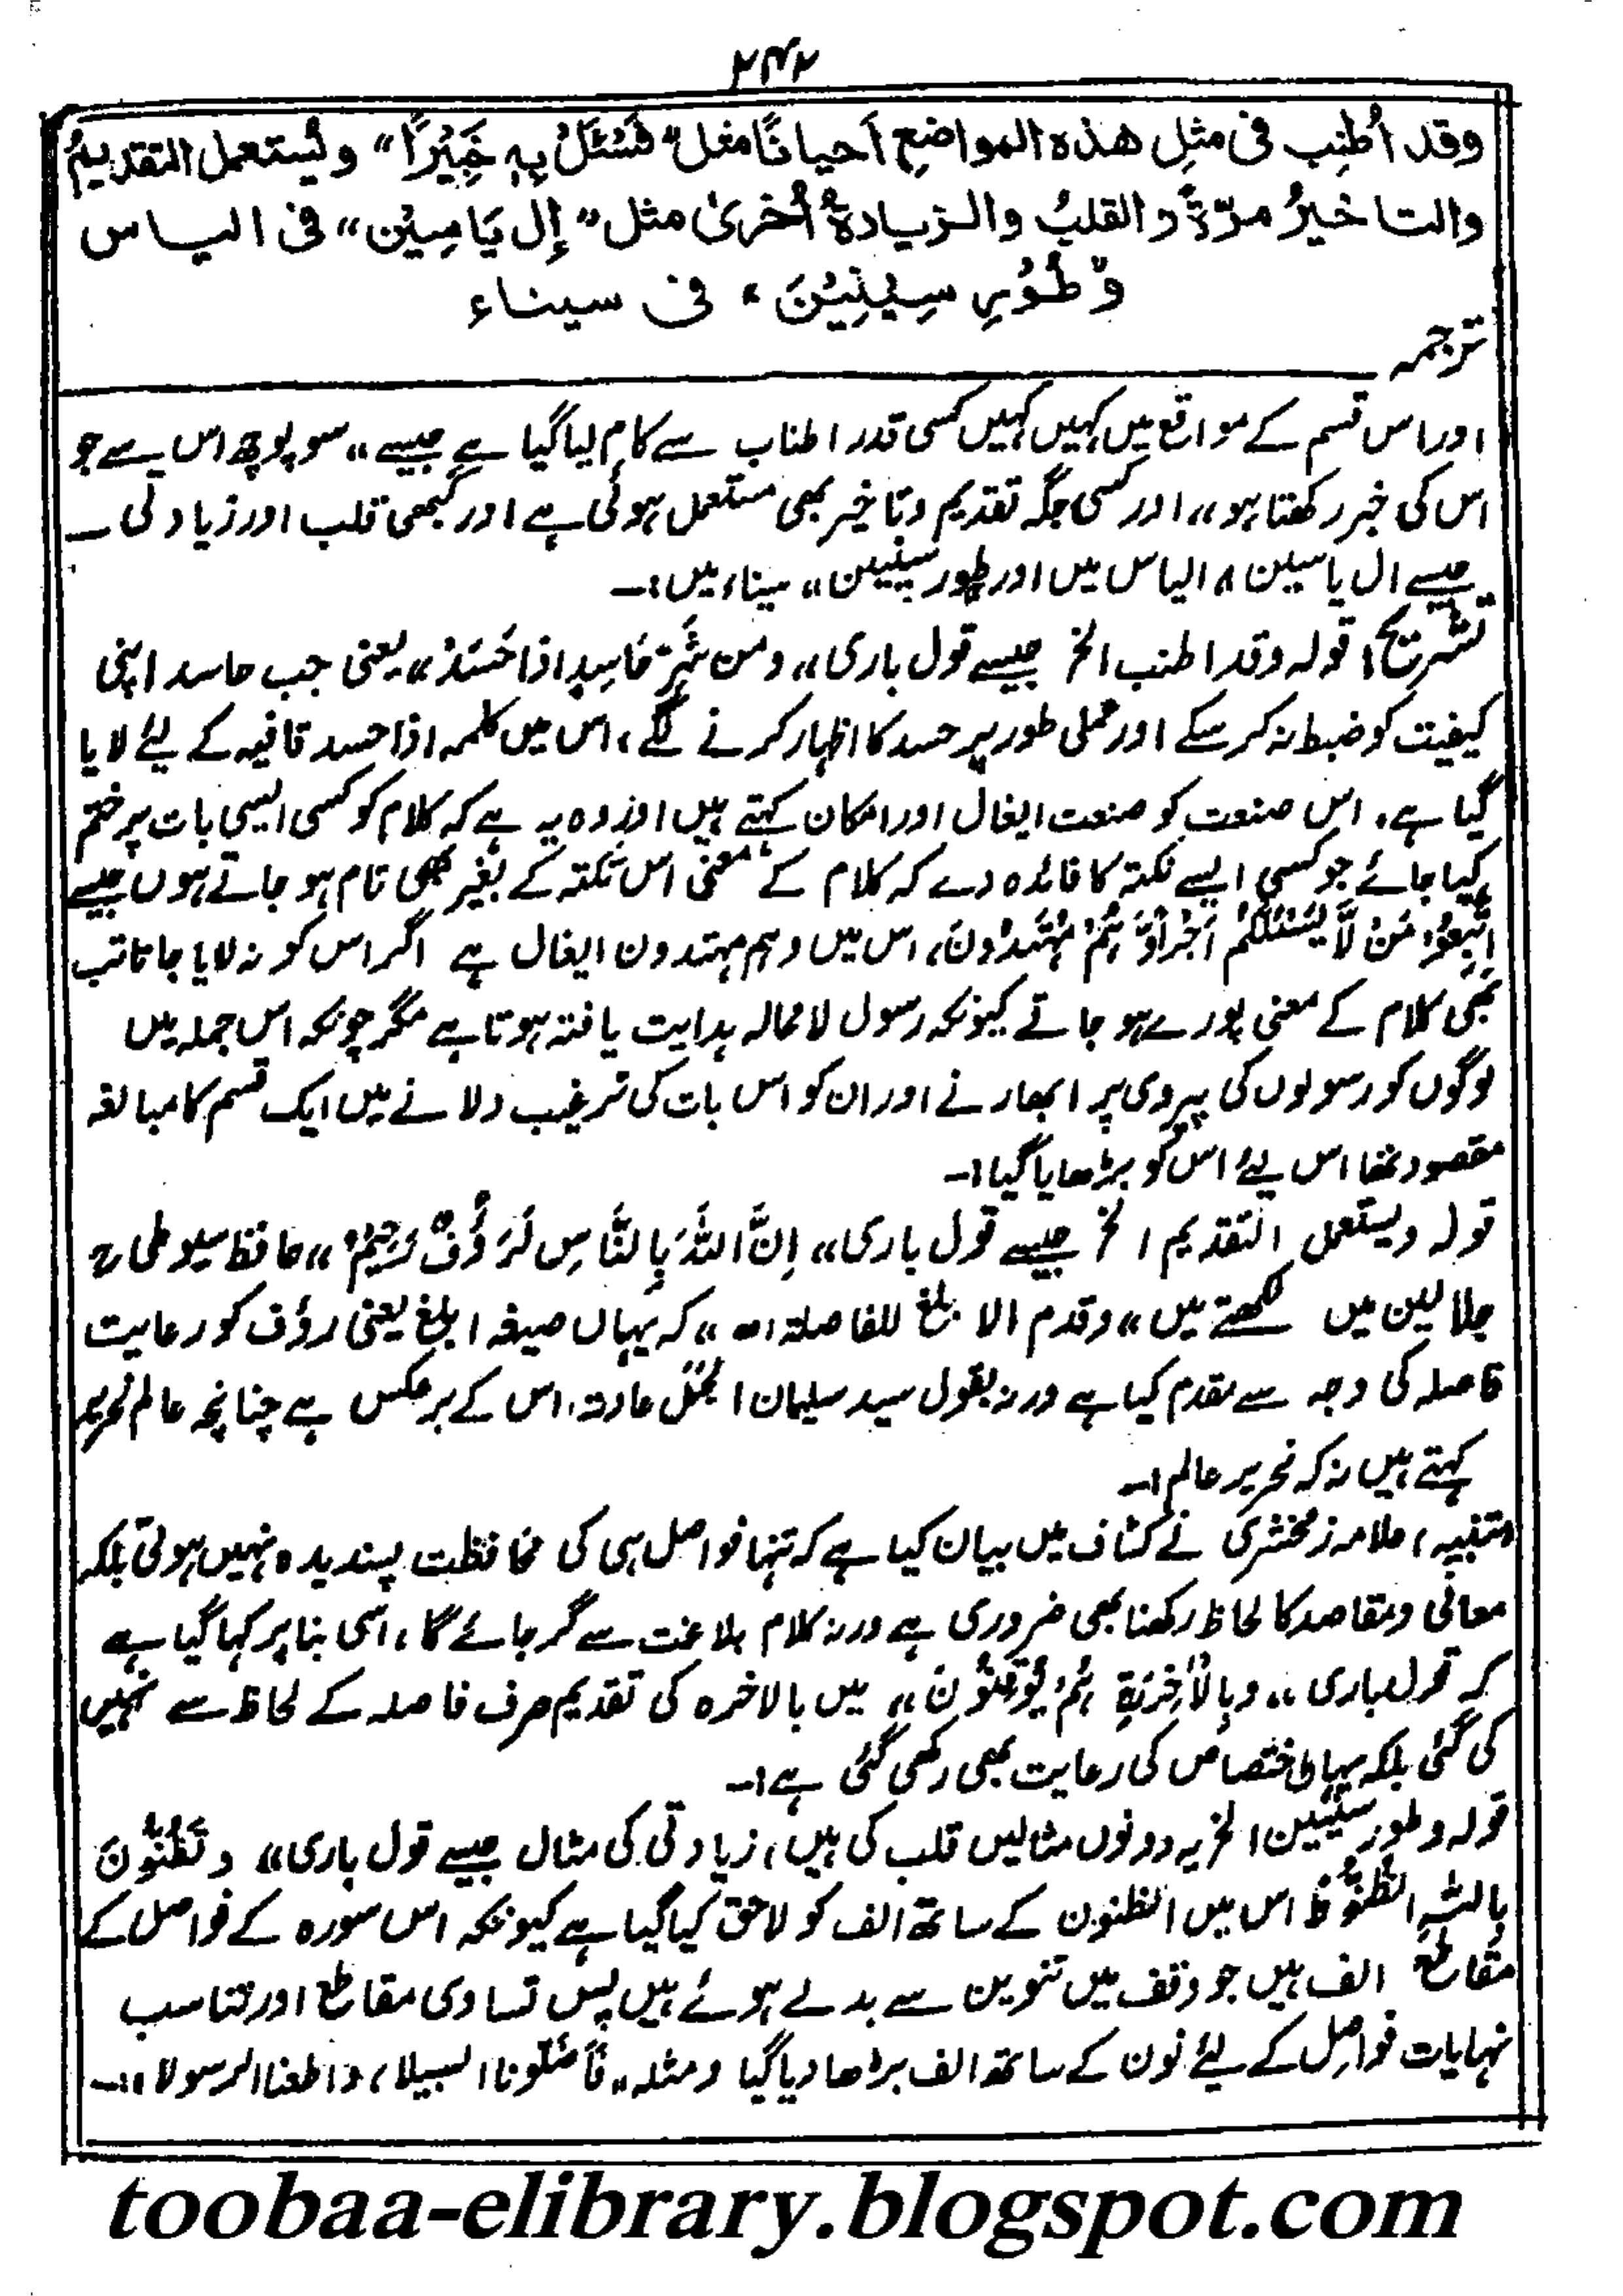 ۲۴۲
وقد أُطنِب فی مثلِ هذه المواضع أحیانًا مثل "فَسْئَلْ بِہٖ خَبِیْرًا" ویُستعمل التقدیمُ
والتاخیرُ مرّةً والقلبُ والزیادةُ أُخریٰ مثل "إِل یَاسِیْن" فی الیاس
وَطُوْرِ سِیْنِیْنَ، فی سیناء
ترجمہ
اور اس قسم کے مواقع میں کہیں کہیں کسی قدر اطناب سے کام لیا گیا ہے جیسے ،، سو پوچھ اس سے جو
اس کی خبر رکھتا ہو،، اور کسی جگہ تقدیم و تاخیر بھی مستعمل ہوئی ہے اور کبھی قلب اور زیادتی ۔
جیسے ال یاسین ،، الیاس میں اور طور سینین ،، سیناء میں :۔
تشریح؛ قولہ وقد اطنب الخ جیسے قول باری ،، ومن شَرِّ حَاسِدٍ اذا حَسَدَ ،، یعنی جب حاسد اپنی
کیفیت کو ضبط نہ کر سکے اور عملی طور پر حسد کا اظہار کرنے لگے ، اس میں کلمہ اذا حسد قافیہ کے لیئے لایا
گیا ہے ۔ اس صنعت کو صنعت ایغال اور امکان کہتے ہیں اور وہ یہ ہے کہ کلام کو کسی ایسی بات پر ختم
کیا جائے جو کسی ایسے نکتہ کا فائدہ دے کہ کلام کے معنی اس نکتہ کے بغیر بھی تام ہو جاتے ہوں جیسے
اتَّبِعُوْ مَنْ لَّا یَسْئَلُکُمْ اَجْرًا وَّ ہُمْ مُہْتَدُوْنَ، اس میں وہم مہتدون ایغال ہے اگر اس کو نہ لایا جاتا تب
بھی کلام کے معنی پورے ہو جاتے کیونکہ رسول لامحالہ ہدایت یافتہ ہوتا ہے مگر چونکہ اس جملہ میں
لوگوں کو رسولوں کی پیروی پر ابھارنے اور ان کو اس بات کی ترغیب دلانے میں ایک قسم کا مبالغہ
مقصود تھا اس لیئے اس کو بڑھایا گیا :۔
قولہ ویستعمل التقدیم الخ جیسے قول باری ،، اِنَّ اللّٰہَ بِالنَّاسِ لَرَؤُفٌ رَّحِیْمٌ ،، حافظ سیوطیؒ
جلالین میں لکھتے ہیں ،، وقدم الابلغ للفاصلۃ اھ ،، کہ یہاں صیغہ ابلغ یعنی رؤف کو رعایت
فاصلہ کی وجہ سے مقدم کیا ہے ورنہ بقول سید سلیمان الجمل عادۃ، اس کے برعکس ہے چنانچہ عالم نحریر
کہتے ہیں نہ کہ نحریر عالم :۔
(تنبیہ) علامہ زمخشری نے کشاف میں بیان کیا ہے کہ تنہا فواصل ہی کی محافظت پسندیدہ نہیں ہوتی بلکہ
معانی و مقاصد کا لحاظ رکھنا بھی ضروری ہے ورنہ کلام بلاغت سے گر جائے گا ، اسی بنا پر کہا گیا ہے
کہ قول باری ،، وبِالْاٰخِرَۃِ ہُمْ یُوْقِنُوْنَ ،، میں بالاخرہ کی تقدیم صرف فاصلہ کے لحاظ سے نہیں
کی گئی بلکہ یہاں اختصاص کی رعایت بھی رکھی گئی ہے :۔
قولہ و طور سینین الخ یہ دونوں مثالیں قلب کی ہیں ، زیادتی کی مثال جیسے قول باری ،، وتَظُنُّوْنَ
بِاللّٰہِ الظُّنُوْنَا اس میں الظنون کے ساتھ الف کو لاحق کیا گیا ہے کیونکہ اس سورہ کے فواصل کے
مقاطع الف ہیں جو وقف میں تنوین سے بدلے ہوئے ہیں پس تساوی مقاطع اور تناسب
نہایات فواصل کے لیئے نون کے ساتھ الف بڑھا دیا گیا ومثلہ ،، فَأَضَلُّونا السبیلا ، واطعنا الرسولا ،، :۔
toobaa-elibrary.blogspot.com